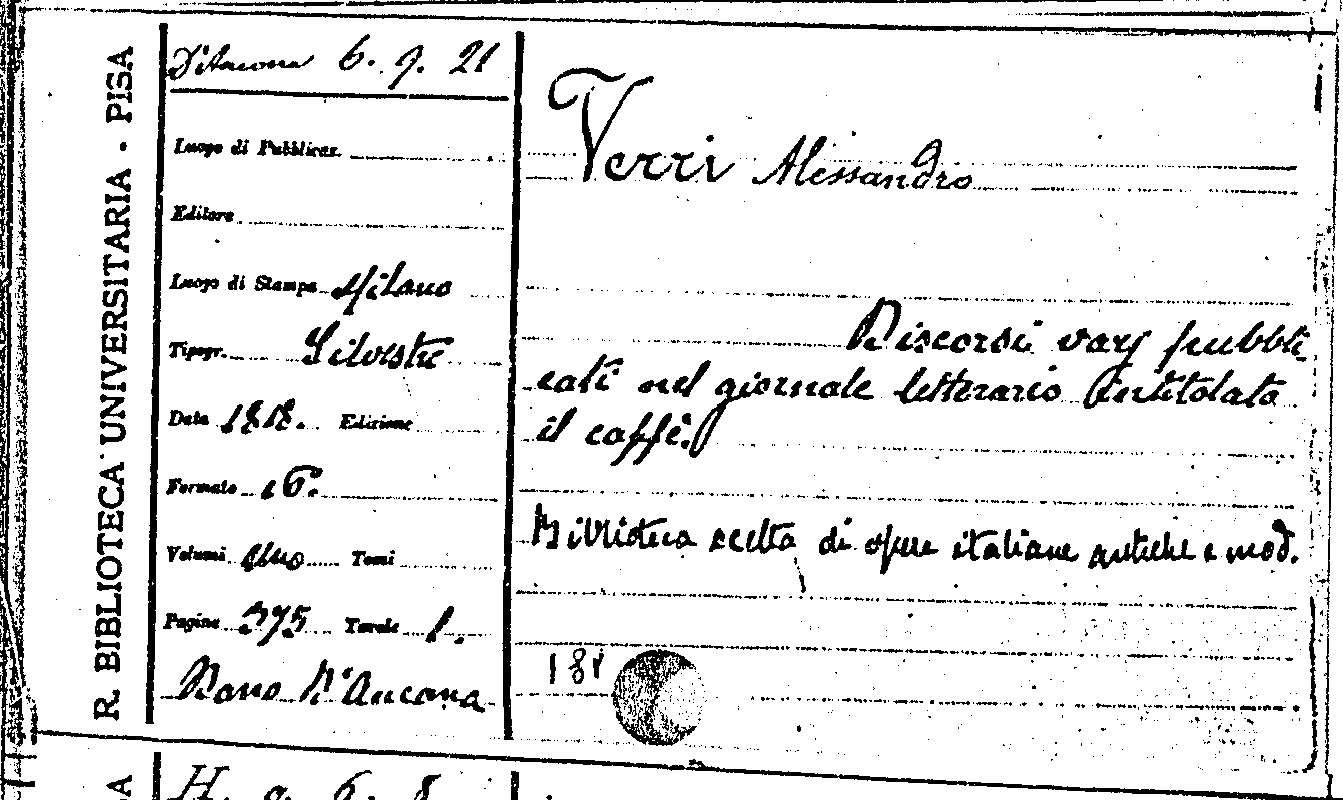 R. BIBLIOTECA UNIVERSITARIA - PISA
D'Ancona 6. 9. 21
Luogo di Pubblicaz.
Editore
Luogo di Stampa Milano
Tipogr. Silvestri
Data 1818. Edizione
Formato 16°.
Volumi uno Tomi
Pagine 375 Tavole 1.
Dono D'Ancona
Verri Alessandro
Discorsi varj pubbli
cati nel giornale letterario intitolato
il caffè.
Biblioteca scelta di opere italiane antiche e mod.
181
H. 9. 6. 8